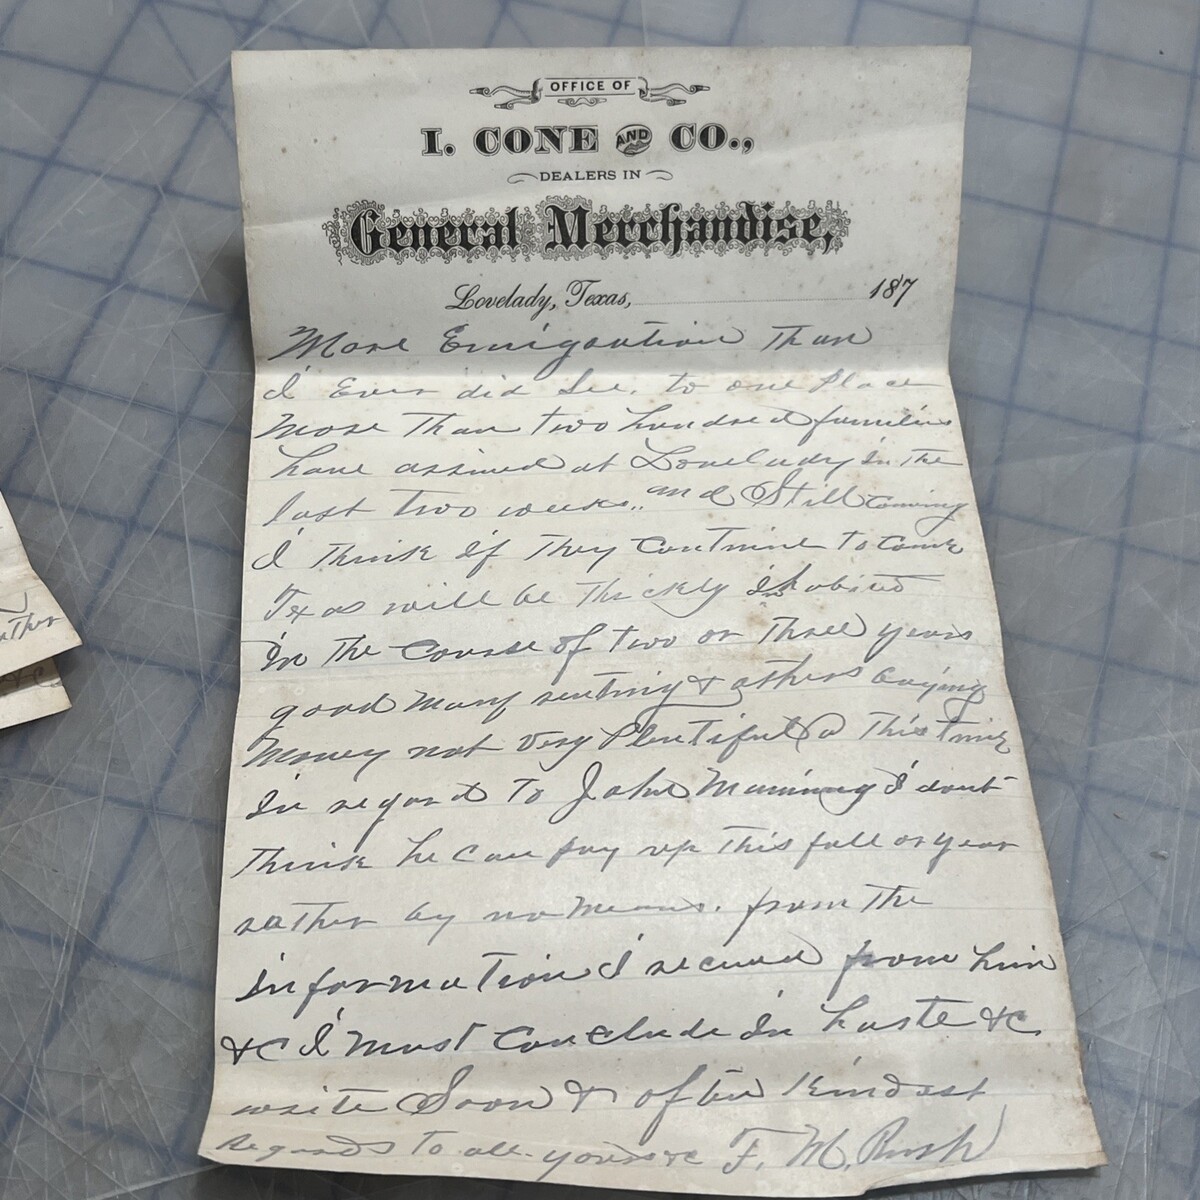 OFFICE OF
I. CONE AND CO.,
DEALERS IN
General Merchandise,
Lovelady, Texas, 187
More Emigration Than
I Ever did See. to one Place
More Than two hundred families
have arrived at Lovelady in the
last two weeks,, and Still Coming
I think if They Continue to Come
Texas will be Thickly Inhabited
In The Course of two or Three years
good many renting & others buying
Money not Very Plentiful @ This time
In regard To John Manning I dont
Think he can pay up This fall or year
rather by no Means. from The
Information I received from him
&C I Must Conclude In haste &C
write Soon & often Kindest
Regards To all. yours &c F. M. Rush
ather
&C